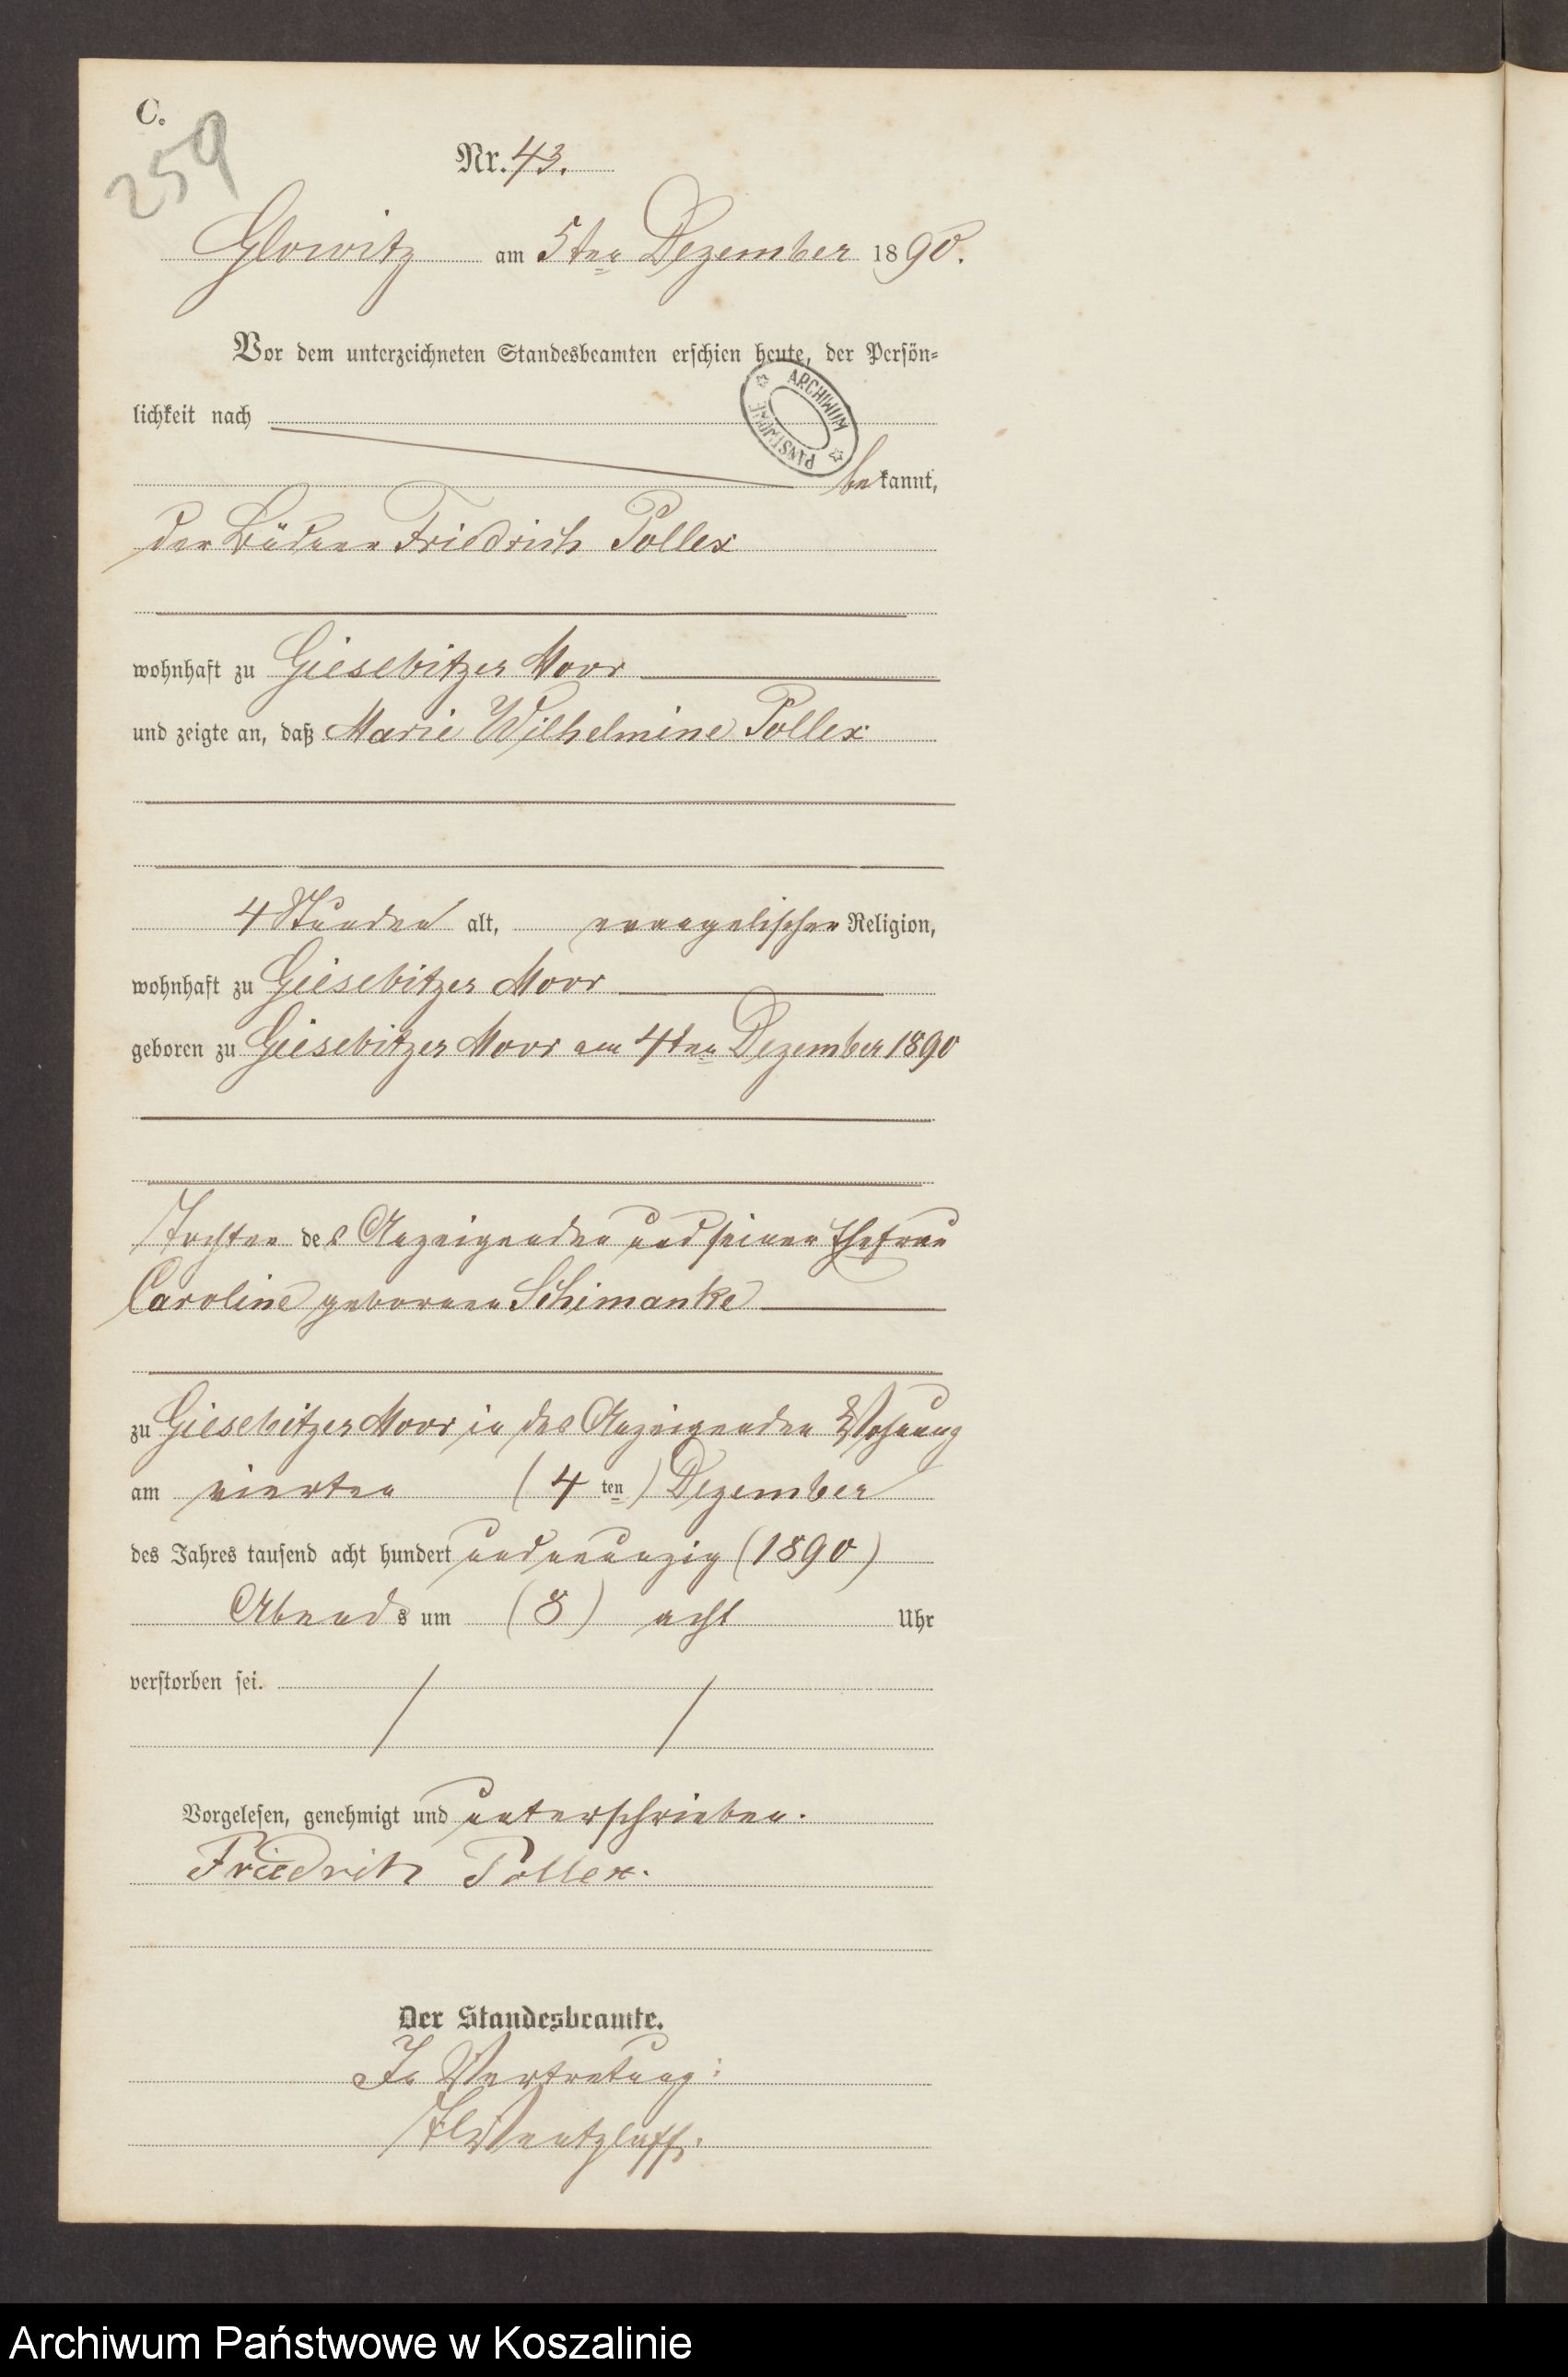 C.
259
Nr. 43.
Glowitz am 5ten Dezember 1890.
Vor dem unterzeichneten Standesbeamten erschien heute, der Persön-
lichkeit nach
ARCHIWUM PAŃSTWOWE
bekannt,
der Büdner Friedrich Pollex
wohnhaft zu Giesebitzer Moor
und zeigte an, daß Marie Wilhelmine Pollex
4 Stunden alt, evangelischer Religion,
wohnhaft zu Giesebitzer Moor
geboren zu Giesebitzer Moor am 4ten Dezember 1890
Tochter des Anzeigenden und seiner Ehefrau
Caroline geborenen Schimanke
zu Giesebitzer Moor in des Anzeigenden Wohnung
am vierten (4ten) Dezember
des Jahres tausend acht hundert und neunzig (1890)
Abends um (8) acht Uhr
verstorben sei.
Vorgelesen, genehmigt und unterschrieben.
Friedrich Pollex.
Der Standesbeamte.
In Vertretung:
Wentzlaff.
Archiwum Państwowe w Koszalinie